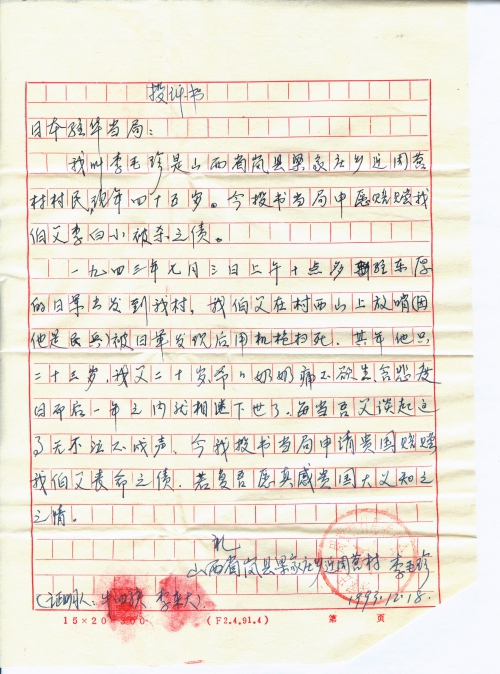 投诉书
日本驻华当局：
我叫李毛珍是山西省岚县梁家庄乡近周营
村村民，现年四十五岁。今投书当局申愿赔赏我
伯父李白小被杀之债。
一九四三年元月三日上午十点多 驻东
的日军出发到我村，我伯父在村西山上放哨（因
他是民兵）被日军发现后用机枪扫死。其年他只
二十三岁，我父二十岁，爷爷奶奶痛不欲生，含悲度
日而后一年之内就相继下世了，每当吾父谈起这
了无不泣不成声，今我投书当局申请贵国赔赏
我伯父丧命之债。若复吾愿真感贵国大义知之
之情。
礼
山西省岚县梁家庄乡近周营村 李毛珍
（证明人： 李来大） 1993.12.18.
15×20=300 (F2.4.91.4) 第 页